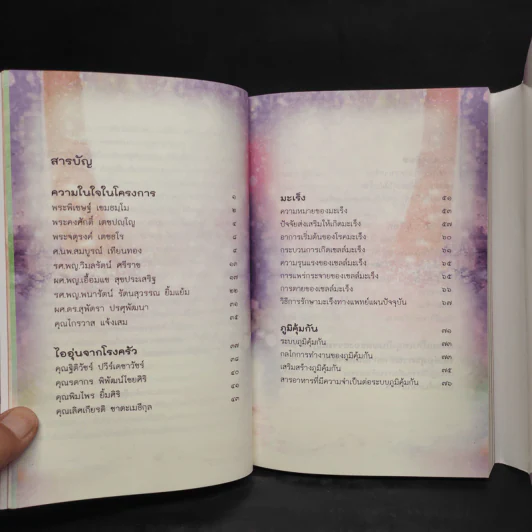 สารบัญ
ความในใจในโครงการ ๑
พระพีเชษฐ์ เขมธมฺโม ๒
พระคงศักดิ์ เตชปญฺโญ ๔
พระจตุรงค์ เตชธโร ๘
ศ.นพ.สมบูรณ์ เทียนทอง
รศ.พญ.วิมลรัตน์ ศรีราช
ผศ.พญ.เยื้อมแข สุขประเสริฐ ๑๗
รศ.พญ.พนารัตน์ รัตนสุวรรณ ยิ้มแย้ม
ผศ.ดร.สุพัตรา ปรศุพัฒนา
คุณโกรวาส แจ้งเสม ๓๕
ไออุ่นจากโรงครัว ๓๗
คุณฐิติวัชร์ ปวีร์เดชาวัชร์ ๓๘
คุณรดากร พิพัฒน์ไชยศิริ ๔๐
คุณพิมไพร ยิ้มศิริ ๔๑
คุณเลิศเกียรติ ชาตะเมธีกุล ๔๓
มะเร็ง ๕๑
ความหมายของมะเร็ง ๕๓
ปัจจัยส่งเสริมให้เกิดมะเร็ง ๕๗
อาการเริ่มต้นของโรคมะเร็ง ๖๐
กระบวนการเกิดเซลล์มะเร็ง ๖๑
ความรุนแรงของเซลล์มะเร็ง ๖๕
การแพร่กระจายของเซลล์มะเร็ง ๖๕
การตายของเซลล์มะเร็ง ๖๖
วิธีการรักษามะเร็งทางแพทย์แผนปัจจุบัน ๖๗
ภูมิคุ้มกัน ๗๑
ระบบภูมิคุ้มกัน ๗๓
กลไกการทำงานของภูมิคุ้มกัน ๗๓
เสริมสร้างภูมิคุ้มกัน ๗๕
สารอาหารที่มีความจำเป็นต่อระบบภูมิคุ้มกัน ๗๖